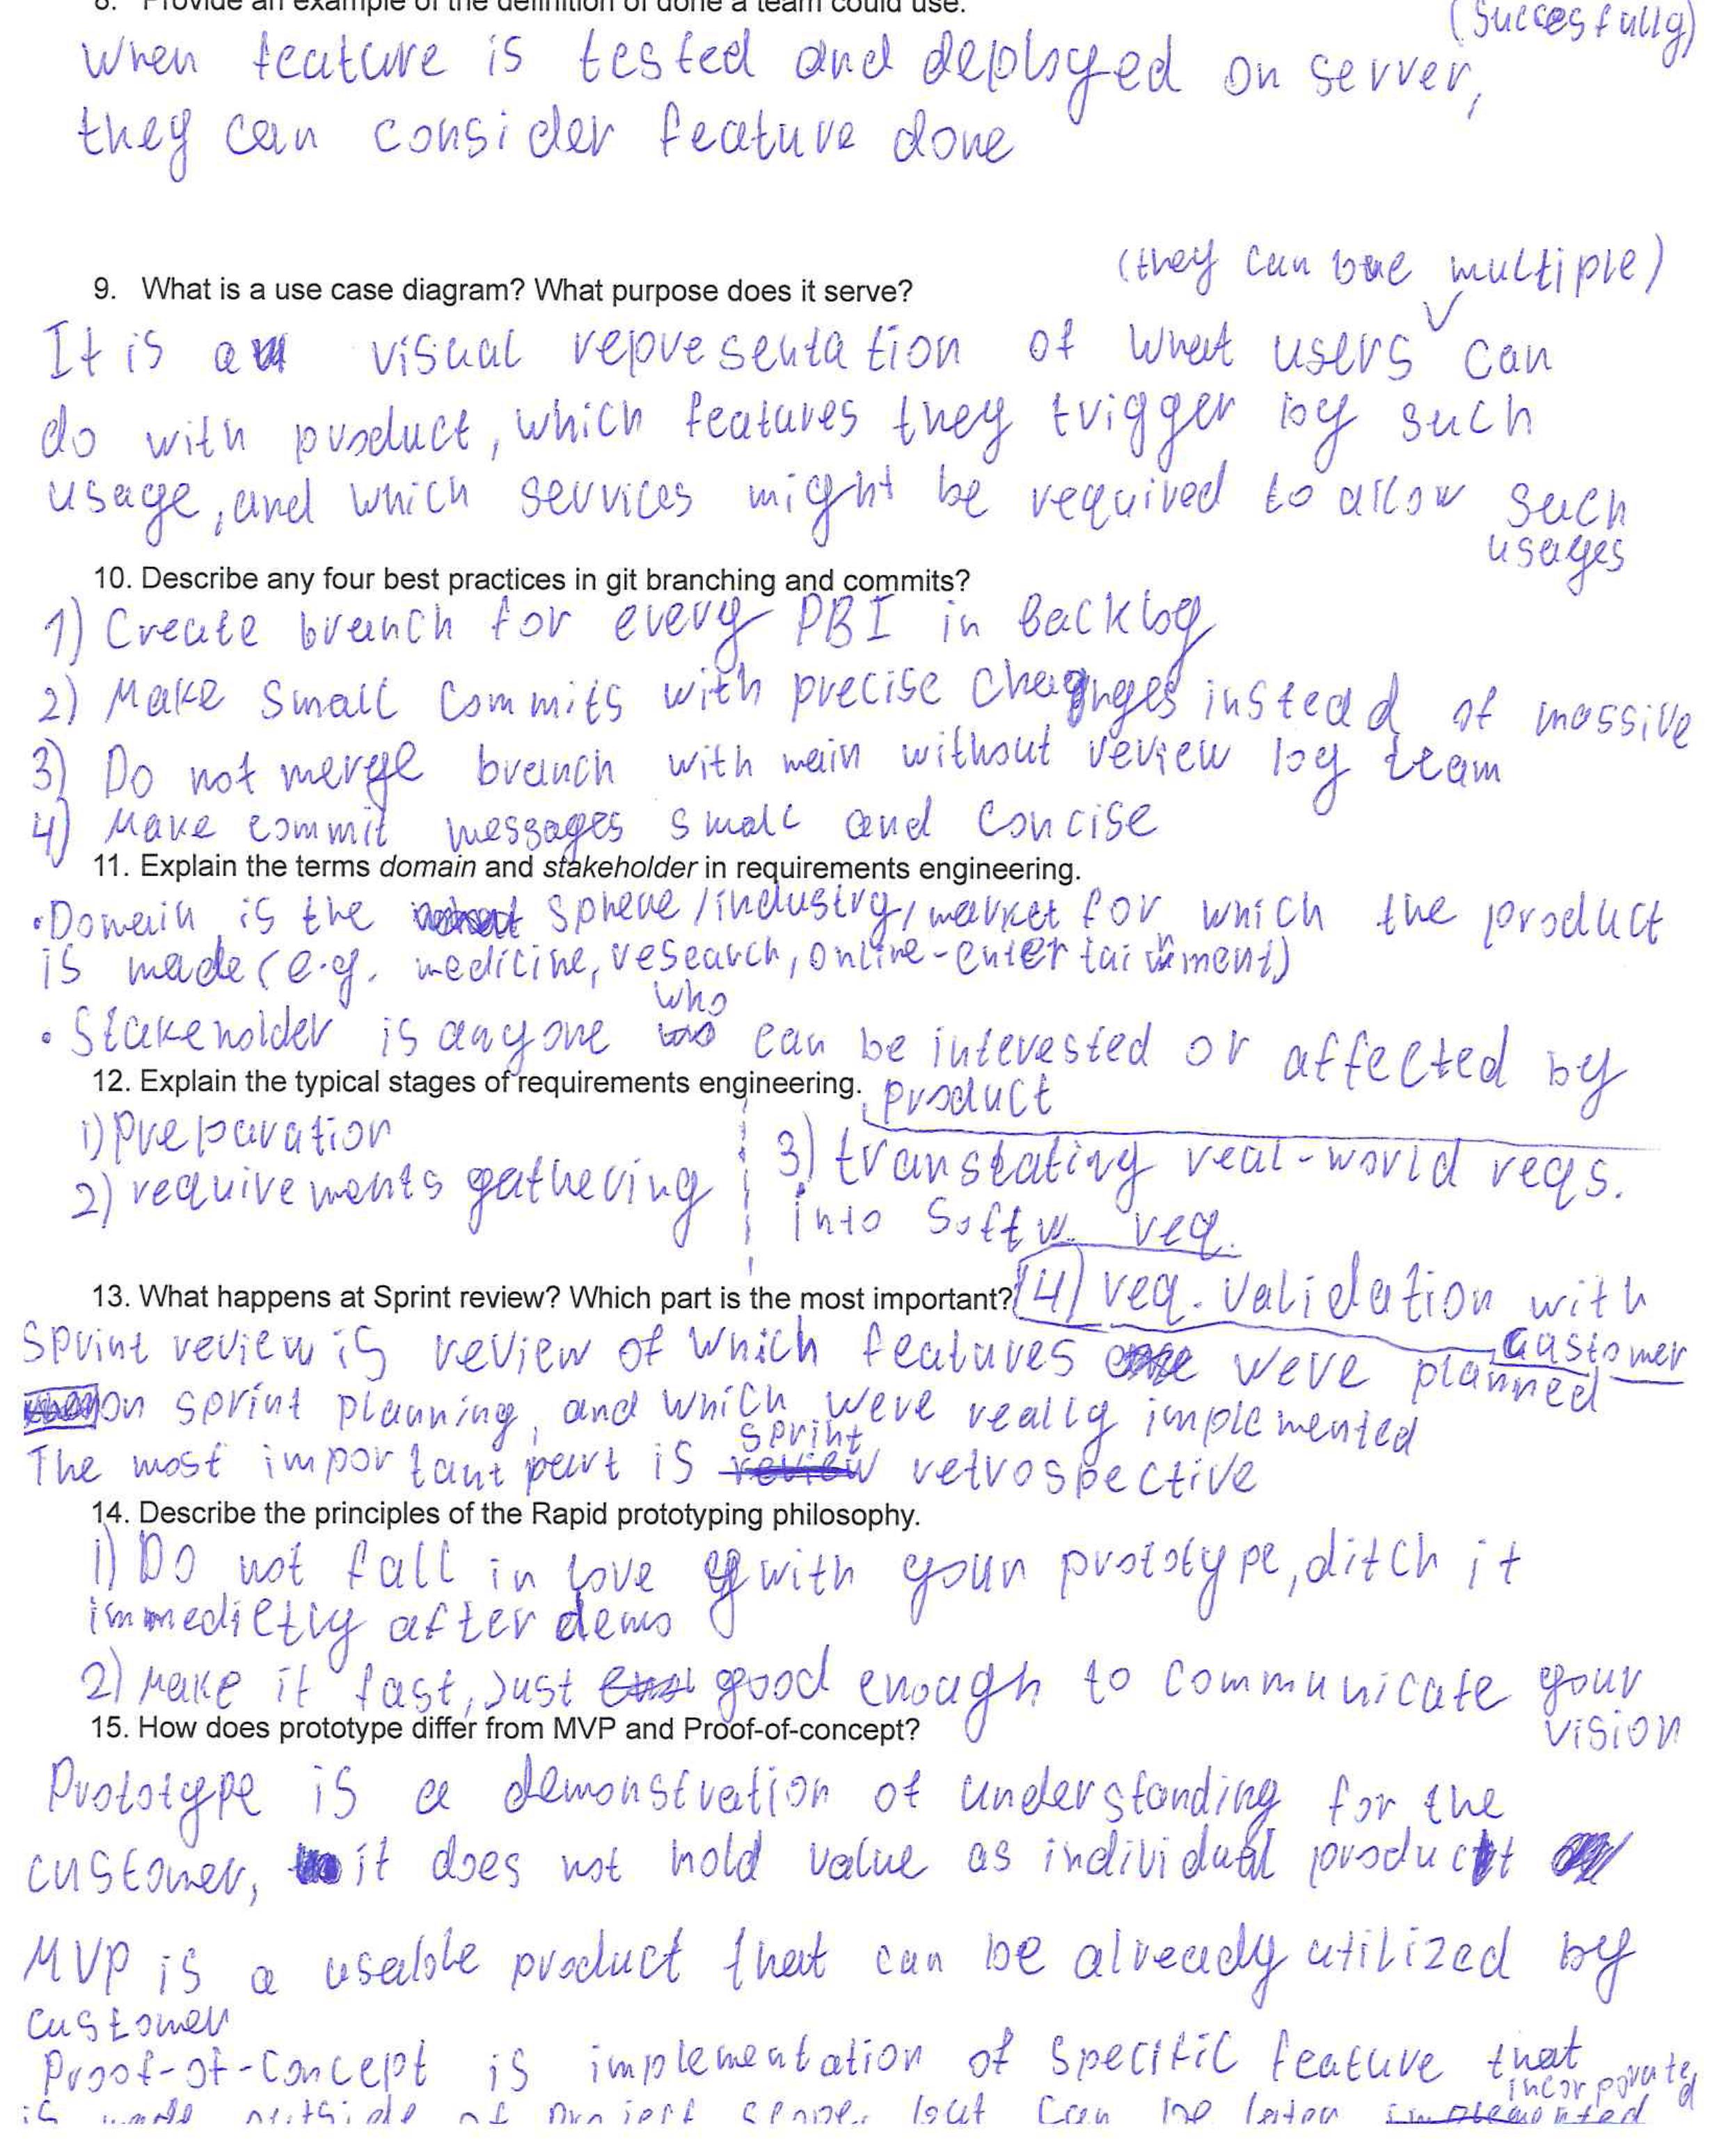 8. Provide an example of the definition of done a team could use.
(Succesfully)
When feature is tested and deployed on server,
they can consider feature done
(they can be multiple)
9. What is a use case diagram? What purpose does it serve?
It is a visual representation of what users can
do with product, which features they trigger by such
usage, and which services might be required to allow such
usages
10. Describe any four best practices in git branching and commits?
1) Create branch for every PBI in backlog
2) Make small commits with precise changes instead of massive
3) Do not merge branch with main without review by team
4) Make commit messages small and concise
11. Explain the terms domain and stakeholder in requirements engineering.
• Domain is the sphere/industry/market for which the product
is made (e.g. medicine, research, online-entertainment)
• Stakeholder is anyone who can be interested or affected by
product
12. Explain the typical stages of requirements engineering.
1) Preparation
2) requirements gathering
3) translating real-world reqs.
into softw. req.
4) req. validation with
customer
13. What happens at Sprint review? Which part is the most important?
Sprint review is review of which features were planned
on sprint planning, and which were really implemented
The most important part is sprint retrospective
14. Describe the principles of the Rapid prototyping philosophy.
1) Do not fall in love with your prototype, ditch it
immedietly after demo
2) Make it fast, just good enough to communicate your
vision
15. How does prototype differ from MVP and Proof-of-concept?
Prototype is a demonstration of understanding for the
customer, it does not hold value as individual product
MVP is a usable product that can be already utilized by
customer
Proof-of-concept is implementation of specific feature that
is made outside of project scope, but can be later incorporated